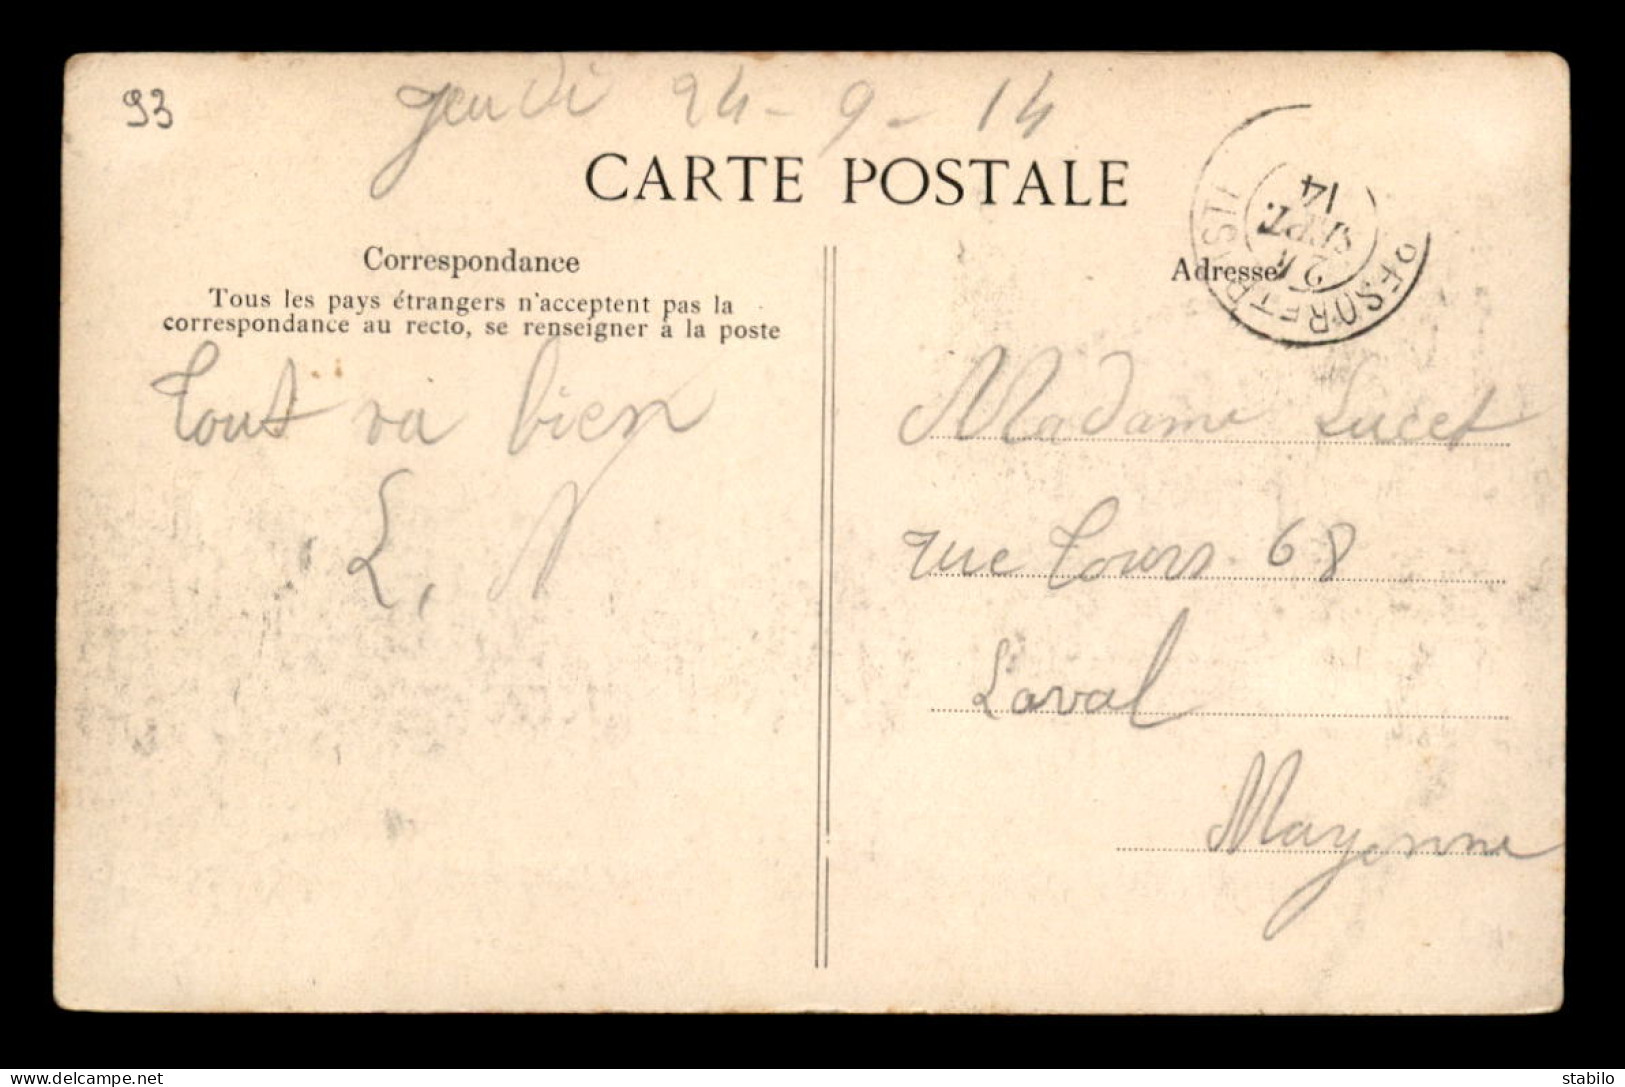 93
jeudi 24-9-14
CARTE POSTALE
14
SEPT.
TRÉSOR ET POSTES
Correspondance
Adresse
Tous les pays étrangers n'acceptent pas la
correspondance au recto, se renseigner à la poste
Tout va bien
L.
Madame Lucet
rue Tours 68
Laval
Mayenne
www.delcampe.net
stabilo